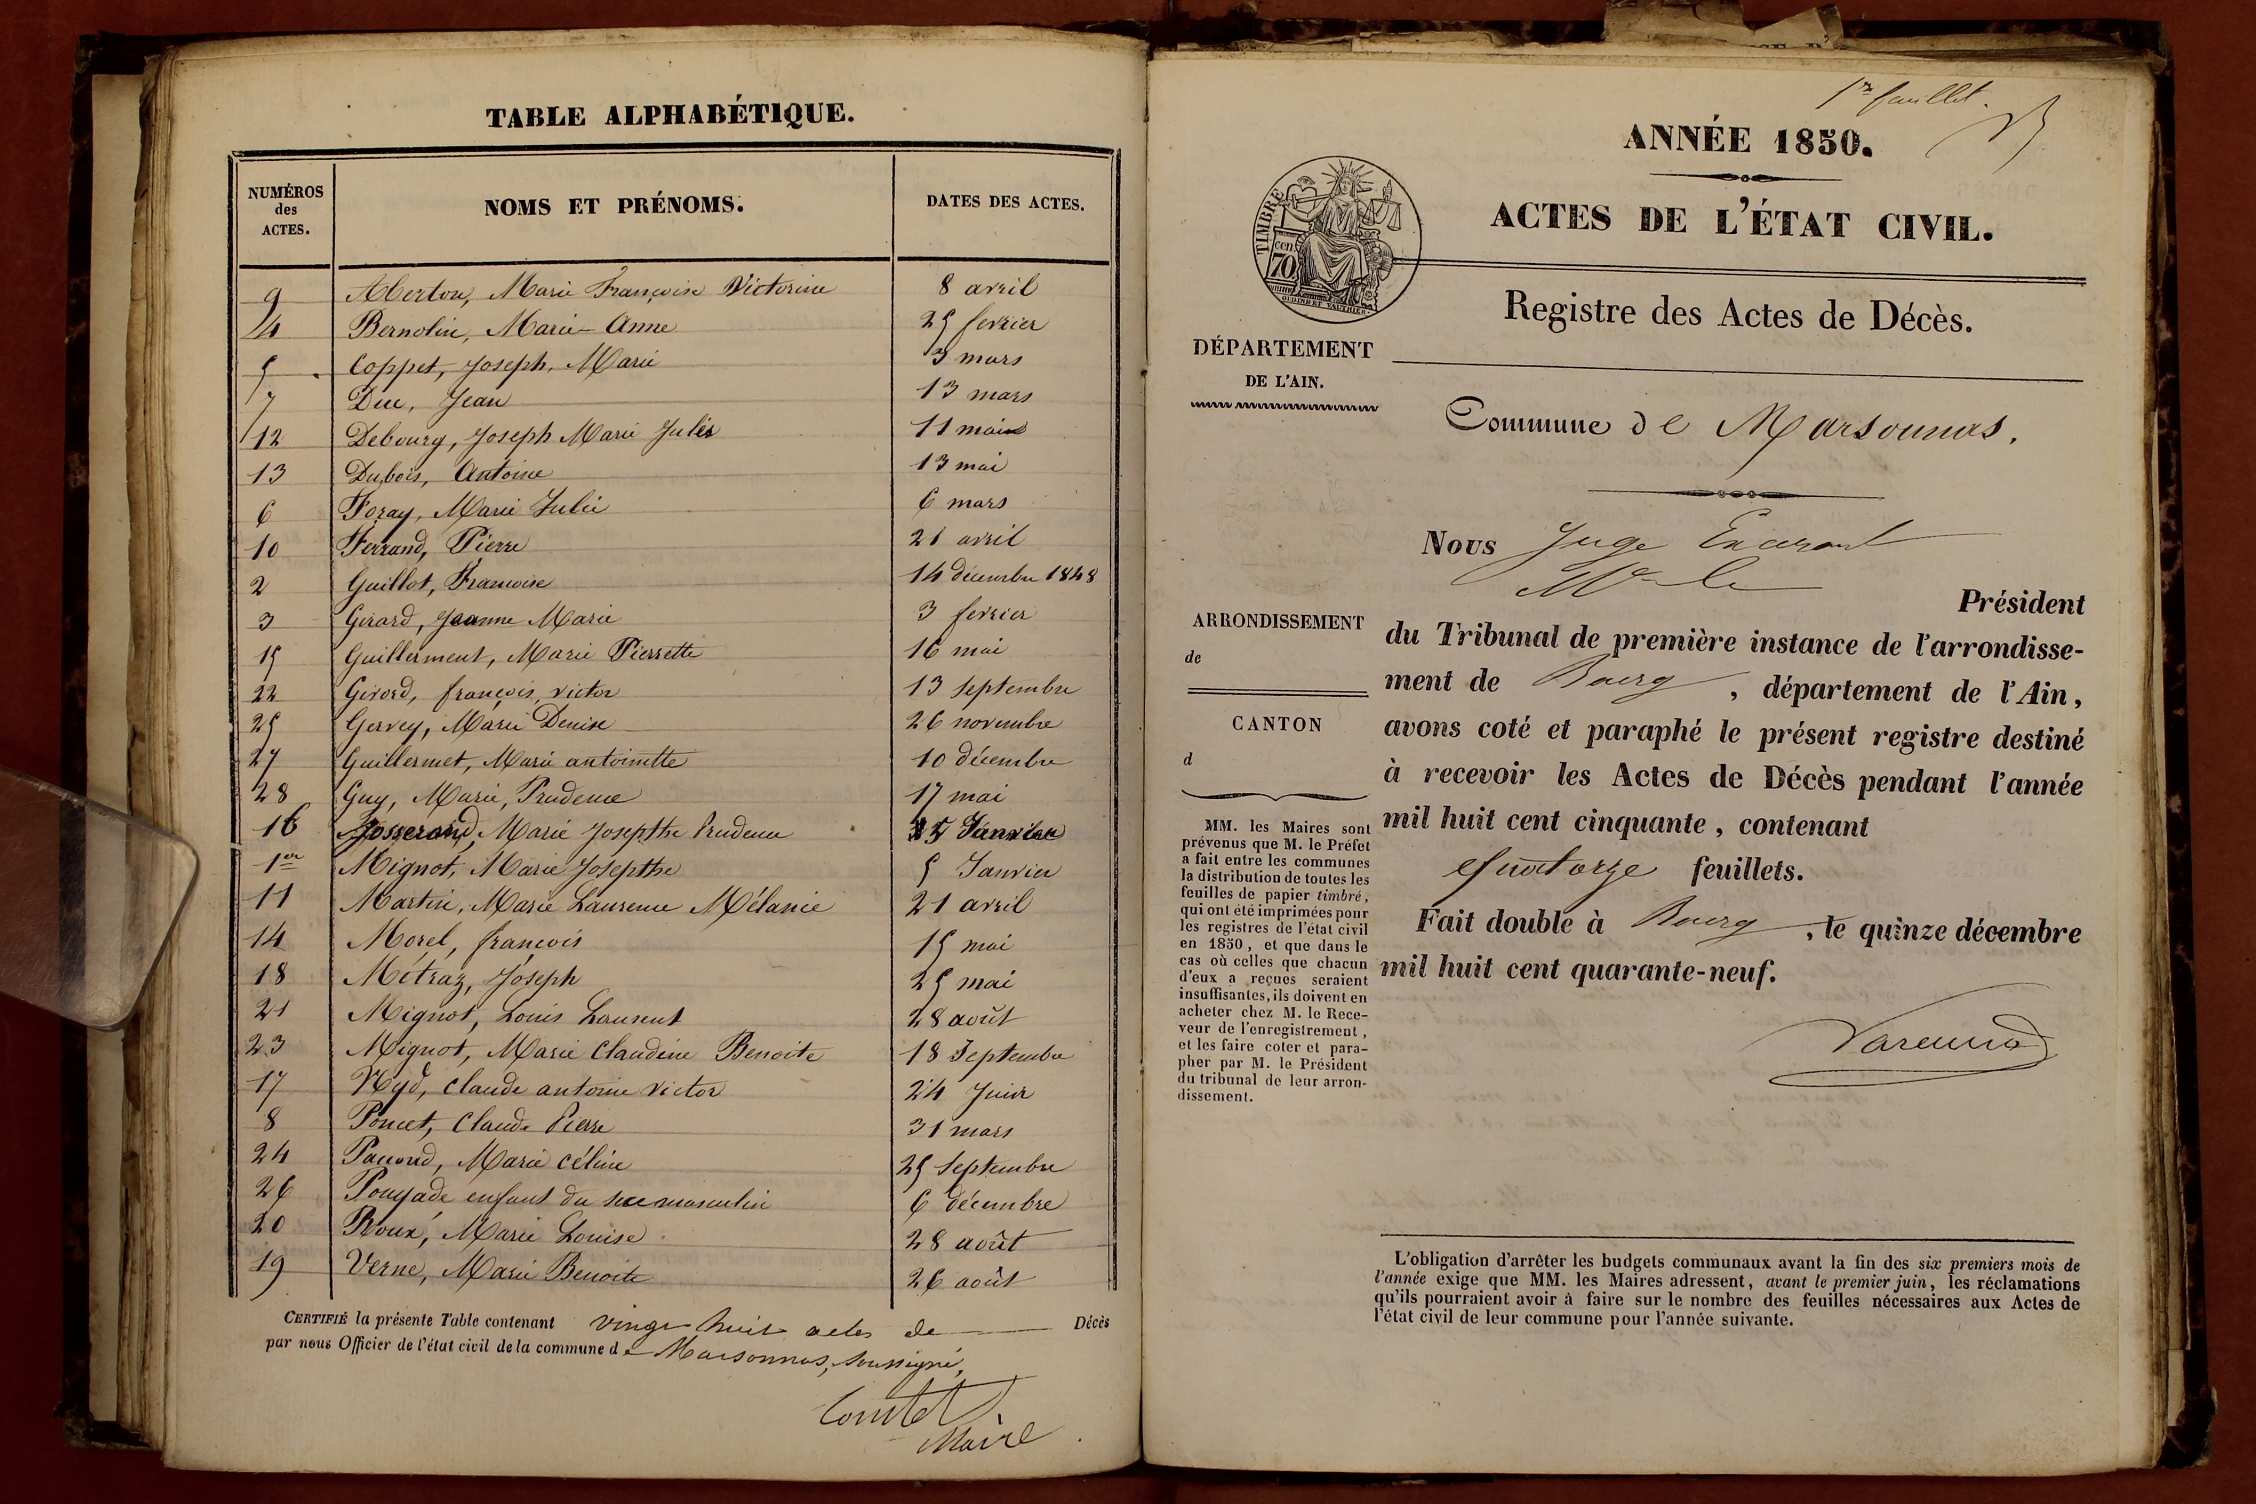 TABLE ALPHABÉTIQUE.
NUMÉROS
des
ACTES.
NOMS ET PRÉNOMS.
DATES DES ACTES.
9 Alberton, Marie Françoise Victorine 8 avril
4 Bernolin, Marie-Anne 25 fevrier
5 Coppet, Joseph, Marie 3 mars
7 Duc, Jean 13 mars
12 Debourg, Joseph Marie Jules 11 mai
13 Dubois, Antoine 13 mai
6 Foray, Marie Julie 6 mars
10 Ferrand, Pierre 21 avril
2 Guillot, Francoise 14 décembre 1848
3 Girard, Jeanne Marie 3 fevrier
15 Guillerment, Marie Pierrette 16 mai
22 Girord, françois victor 13 septembre
25 Gervey, Marie Denise 26 novembre
27 Guillermet, Marie antoinette 10 décembre
28 Guy, Marie, Prudence 17 mai
16 Josserand, Marie Josepthe Prudence 15 Janvier
1er Mignot, Marie Josepthe 5 Janvier
11 Martin, Marie Laurence Mélanie 21 avril
14 Morel, françois 15 mai
18 Métraz, Joseph 25 mai
21 Mignot, Louis Laurent 28 août
23 Mignot, Marie Claudine Benoite 18 Septembre
17 Nyd, Claude antoine victor 24 Juin
8 Poncet, Claude Pierre 31 mars
24 Pacoud, Marie céline 25 septembre
26 Poujade enfant du sexe masculin 6 décembre
20 Roux, Marie Louise 28 août
19 Verne, Marie Benoite 26 août
CERTIFIÉ la présente Table contenant vingt huit actes de Décès
par nous Officier de l'état civil de la commune de Marsonnas, soussigné,
Maire
1er feuillet.
ANNÉE 1850.
ACTES DE L'ÉTAT CIVIL.
TIMBRE
70 cen
OUDINE ET VAUTHIER.
Registre des Actes de Décès.
DÉPARTEMENT
DE L'AIN.
Commune de Marsonnas.
ARRONDISSEMENT
de
CANTON
d
MM. les Maires sont
prévenus que M. le Préfet
a fait entre les communes
la distribution de toutes les
feuilles de papier timbré,
qui ont été imprimées pour
les registres de l'état civil
en 1850, et que dans le
cas où celles que chacun
d'eux a reçues seraient
insuffisantes, ils doivent en
acheter chez M. le Rece-
veur de l'enregistrement,
et les faire coter et para-
pher par M. le Président
du tribunal de leur arron-
dissement.
Nous Juge
Mr le Président
du Tribunal de première instance de l'arrondisse-
ment de Bourg, département de l'Ain,
avons coté et paraphé le présent registre destiné
à recevoir les Actes de Décès pendant l'année
mil huit cent cinquante, contenant
quatorze feuillets.
Fait double à Bourg, le quinze décembre
mil huit cent quarante-neuf.
L'obligation d'arrêter les budgets communaux avant la fin des six premiers mois de
l'année exige que MM. les Maires adressent, avant le premier juin, les réclamations
qu'ils pourraient avoir à faire sur le nombre des feuilles nécessaires aux Actes de
l'état civil de leur commune pour l'année suivante.